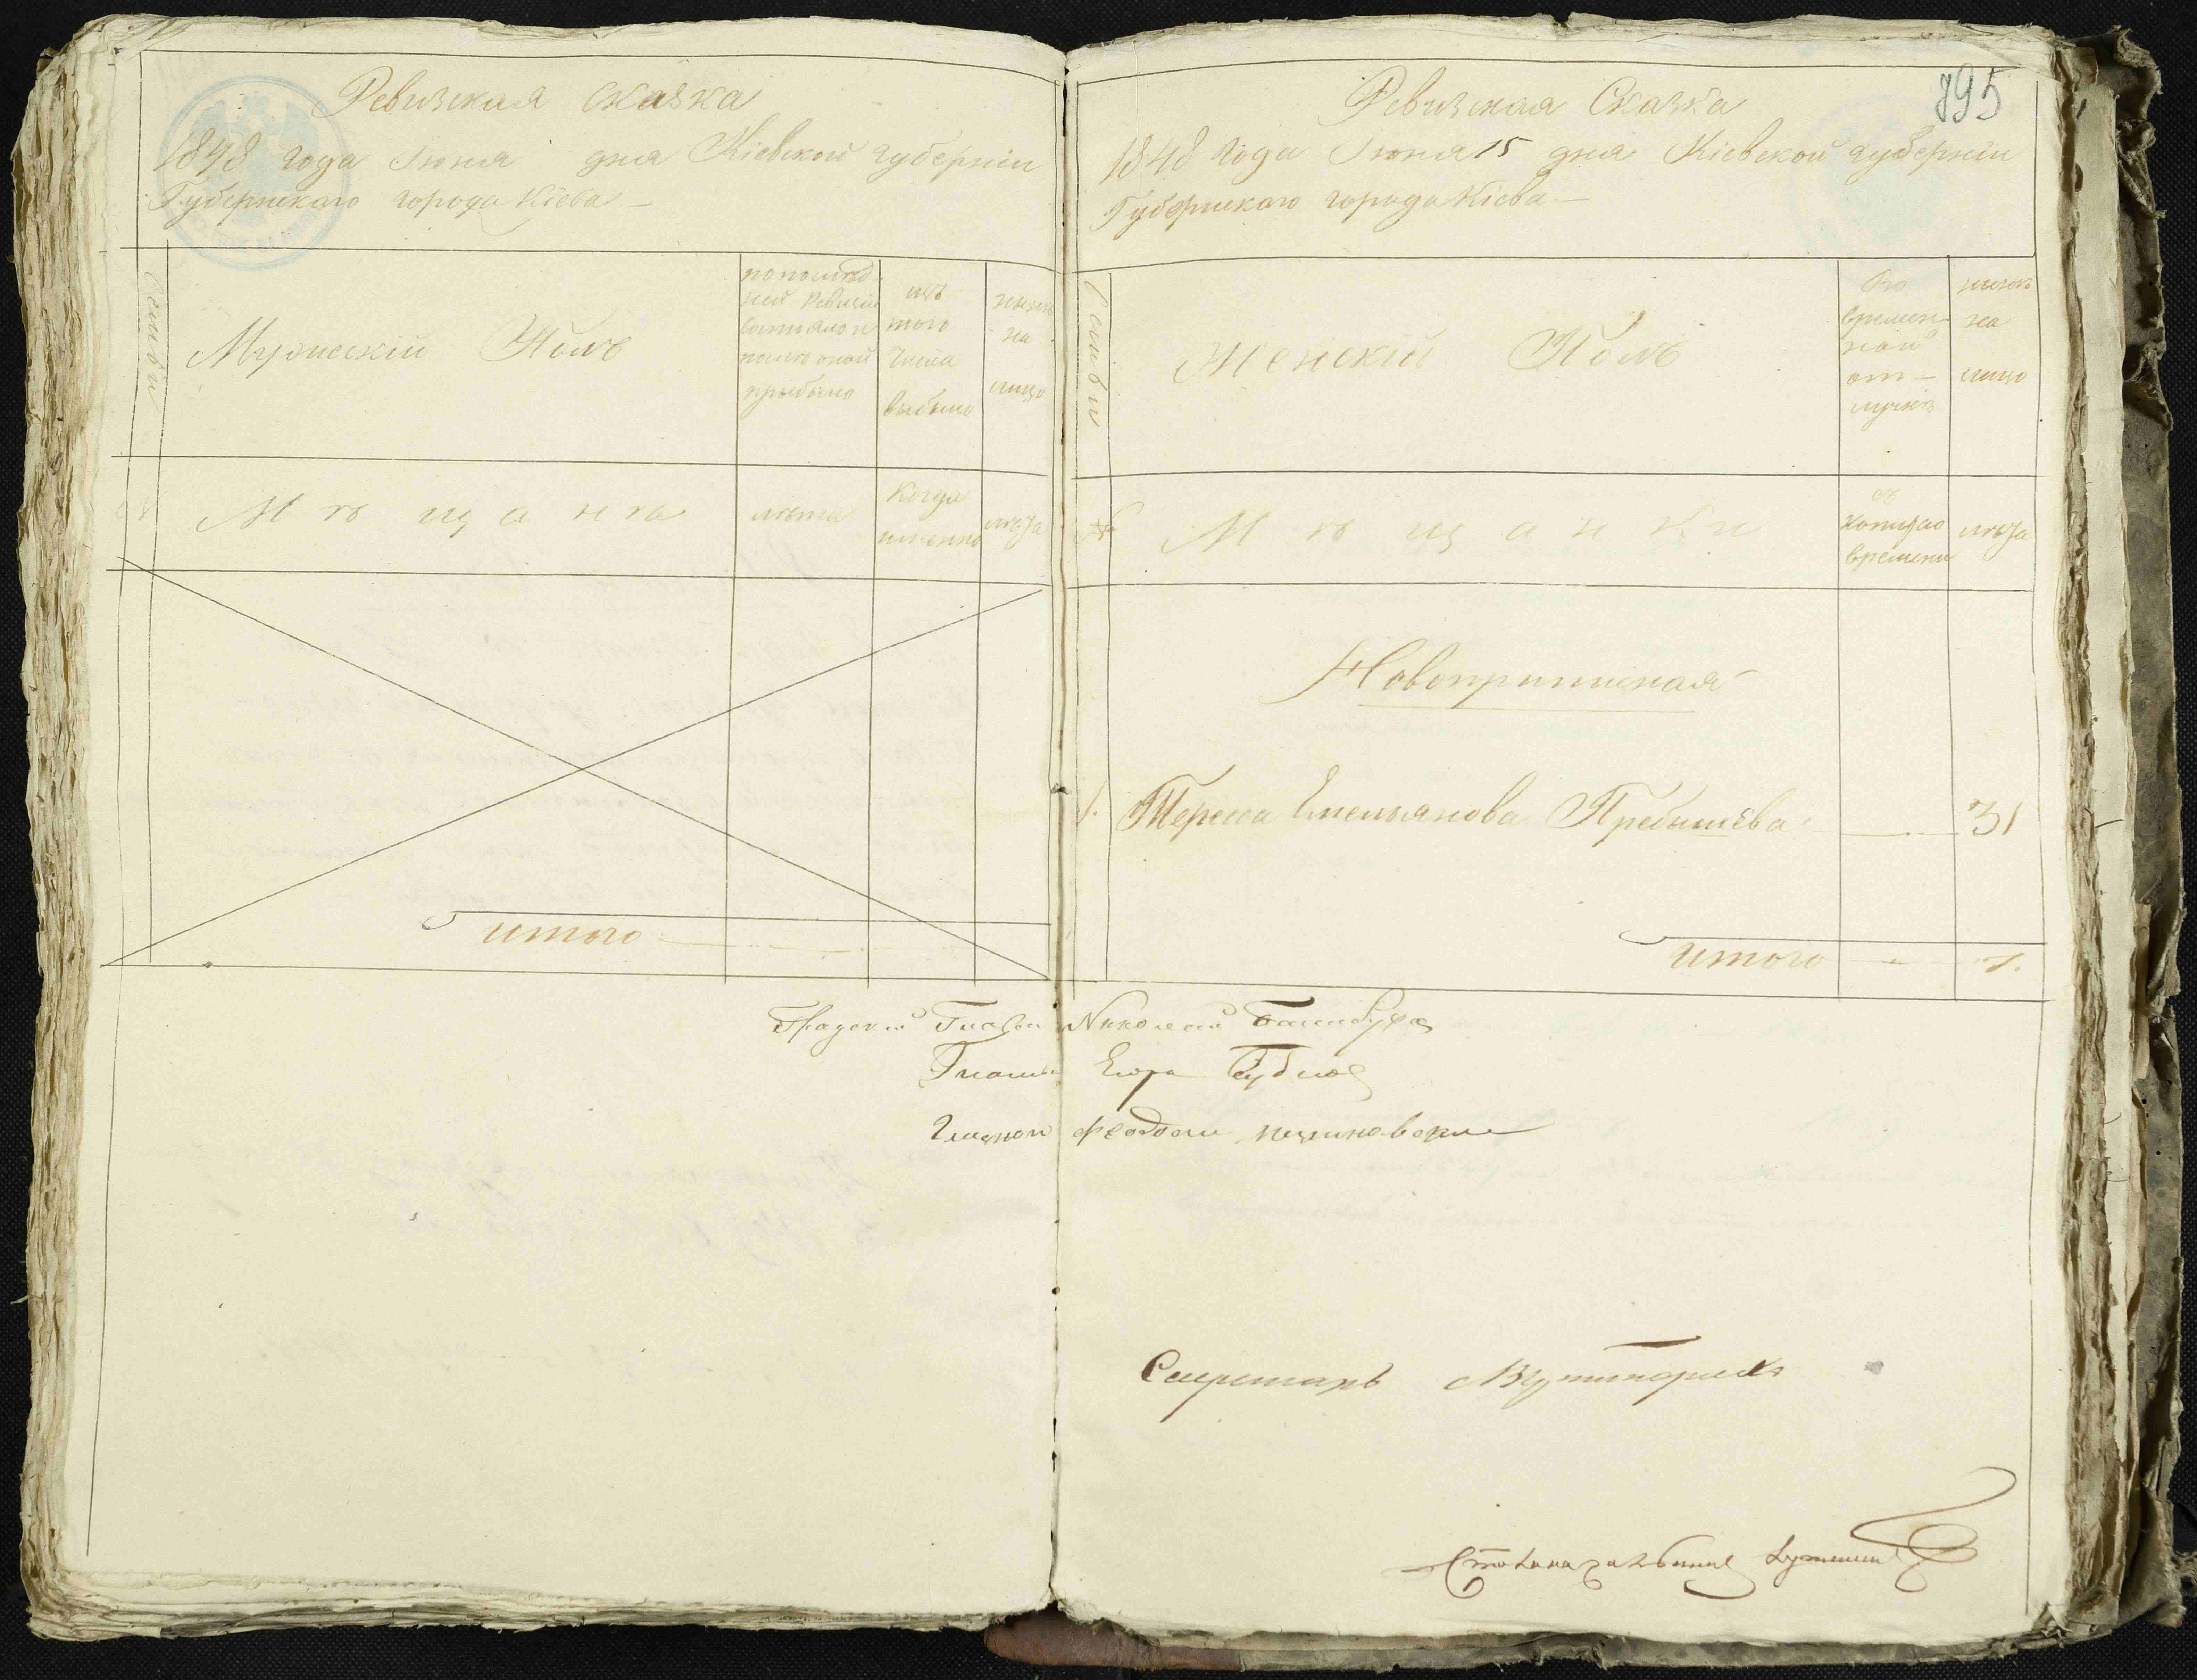 Ревизская сказка
1848 года Июня дня Кіевской губерніи
Губернскаго города Кіева
Семьи
Мужескій Полъ
по послѣд
ней Ревизіи
состояло и
послѣ оной
прибыло
изъ
того
числа
выбыло
нынѣ
на
лицо
№
Мѣщане
лѣта
когда
именно
лѣта
итого
795
Ревизская Сказка
1848 года Июня 15 дня Кіевской губерніи
Губернскаго города Кіева
Семьи
Женскій Полъ
Во
времен
ной
от-
лучкѣ
нынѣ
на
лицо
№
Мѣщанки
съ
котораго
времени
лѣта
Новоприписная
1. Тереса Емельянова 31
итого 1.
Градской Глава Николай
Гласный Егоръ
Гласной Феодосій
Секретарь
Столоначальникъ